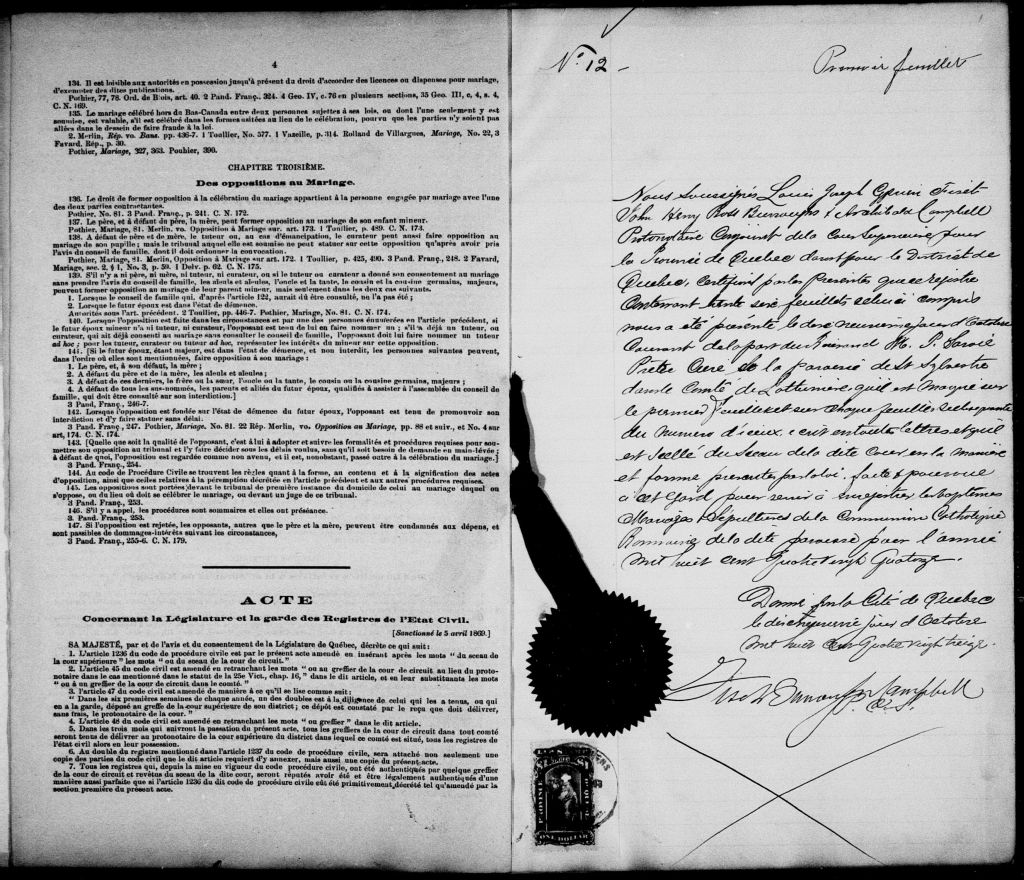 4
134. Il est loisible aux autorités en possession jusqu'à présent du droit d'accorder des licences ou dispenses pour mariage,
d'exempter des dites publications.
Pothier, 77, 78. Ord. de Blois, art. 40. 2 Pand. Franç., 324. 4 Geo. IV, c. 76 en plusieurs sections, 35 Geo. III, c, 4, s. 4,
C. N. 169.
135. Le mariage célébré hors du Bas-Canada entre deux personnes sujettes à ses lois, ou dont l'une seulement y est
soumise, est valable, s'il est célébré dans les formes usitées au lieu de la célébration, pourvu que les parties n'y soient pas
allées dans le dessein de faire fraude à la loi.
2. Merlin, Rép. vo. Bans. pp. 436-7. 1 Toullier, No. 577. 1 Vazeille, p. 314. Rolland de Villargues, Mariage, No. 22, 3
Favard. Rép., p. 30.
Pothier, Mariage, 327, 363. Pouhier, 390.
CHAPITRE TROISIÈME.
Des oppositions au Mariage.
136. Le droit de former opposition à la célébration du mariage appartient à la personne engagée par mariage avec l'une
des deux parties contractantes.
Pothier. No. 81. 3 Pand. Franç., p. 241. C. N. 172.
137. Le père, et à défaut du père, la mère, peut former opposition au mariage de son enfant mineur.
Pothier, Mariage, 81. Merlin, vo. Opposition à Mariage sur. art. 173. 1 Toullier, p. 489. C. N. 173.
138. A défaut de père et de mère, le tuteur ou, au cas d'émancipation, le curateur peut aussi faire opposition au
mariage de son pupille; mais le tribunal auquel elle est soumise ne peut statuer sur cette opposition qu'après avoir pris
l'avis du conseil de famille, dont il doit ordonner la convocation.
Pothier, Mariage, 81. Merlin, Opposition à Mariage sur art. 172. 1 Toullier, p. 425, 490. 3 Pand. Franç., 248. 2 Favard,
Mariage, sec. 2, § 1, No. 3, p. 59. 1 Delv. p. 62. C. N. 175.
139. S'il n'y a ni père, ni mère, ni tuteur, ni curateur, ou si le tuteur ou curateur a donné son consentement au mariage
sans prendre l'avis du conseil de famille, les aïeuls et aïeules, l'oncle et la tante, le cousin et la cousine germains, majeurs,
peuvent former opposition au mariage de leur parent mineur, mais seulement dans les deux cas suivants.
1. Lorsque le conseil de famille qui, d'après l'article 122, aurait dû être consulté, ne l'a pas été;
2. Lorsque le futur époux est dans l'état de démence.
Autorités sous l'art. précédent. 2 Toullier, pp. 446-7. Pothier, Mariage, No. 81. C. N. 174.
140. Lorsque l'opposition est faite dans les circonstances et par une des personnes énumérées en l'article précédent, si
le futur époux mineur n'a ni tuteur, ni curateur, l'opposant est tenu de lui en faire nommer un; s'il a déjà un tuteur, ou
curateur, qui ait déjà consenti au mariage sans consulter le conseil de famille, l'opposant doit lui faire nommer un tuteur
ad hoc; pour les tuteur, curateur ou tuteur ad hoc, représenter les intérêts du mineur sur cette opposition.
141. [Si le futur époux, étant majeur, est dans l'état de démence, et non interdit, les personnes suivantes peuvent,
dans l'ordre où elles sont mentionnées, faire opposition à son mariage:
1. Le père, et, à son défaut, la mère;
2. A défaut du père et de la mère, les aïeuls et aïeules;
3. A défaut de ces derniers, le frère ou la sœur, l'oncle ou la tante, le cousin ou la cousine germains, majeurs;
4. A défaut de tous les sus-nommés, les parents et alliés du futur époux, qualifiés à assister à l'assemblée du conseil de
famille, qui doit être consulté sur son interdiction.]
3 Pand. Franç., 246-7.
142. Lorsque l'opposition est fondée sur l'état de démence du futur époux, l'opposant est tenu de promouvoir son
interdiction et d'y faire statuer sans délai.
3 Pand. Franç., 247. Pothier, Mariage. No. 81. 22 Rép. Merlin, vo. Opposition au Mariage, pp. 88 et suiv., et No. 4 sur
art, 174. C. N. 174.
143. [Quelle que soit la qualité de l'opposant, c'est à lui à adopter et suivre les formalités et procédures requises pour sou-
mettre son opposition au tribunal et l'y faire décider sous les délais voulus, sans qu'il soit besoin de demande en main-levée;
à défaut de quoi, l'opposition est regardée comme non avenu, et il est, nonobstant, passé outre à la célébration du mariage.]
3 Pand. Franç., 254.
144. Au code de Procédure Civile se trouvent les règles quant à la forme, au contenu et à la signification des actes
d'opposition, ainsi que celles relatives à la péremption décrétée en l'article précédent et aux autres procédures requises.
145. Les oppositions sont portées devant le tribunal de première instance du domicile de celui au mariage duquel on
s'oppose, ou du lieu où doit se célébrer le mariage, ou devant un juge de ce tribunal.
3 Pand. Franç., 253.
146. S'il y a appel, les procédures sont sommaires et elles ont préséance.
3 Pand. Franç., 253.
147. Si l'opposition est rejetée, les opposants, autres que le père et la mère, peuvent être condamnés aux dépens, et
sont passibles de dommages-intérêts suivant les circonstances,
3 Pand. Franç., 255-6. C. N. 179.
ACTE
Concernant la Législature et la garde des Registres de l'Etat Civil.
[Sanctionné le 5 avril 1869.]
SA MAJESTÉ, par et de l'avis et du consentement de la Législature de Québec, décrète ce qui suit:
1. L'article 1236 du code de procédure civile est par le présent acte amendé en insérant après les mots " du sceau de
la cour supérieure " les mots " ou du sceau de la cour de circuit."
2. L'article 45 du code civil est amendé en retranchant les mots " ou au greffier de la cour de circuit au lieu du proto-
notaire dans le cas mentionné dans le statut de la 25e Vict., chap. 16," dans le dit article, et en leur substituant les mots
" ou à un greffier de la cour de circuit dans le comté."
3. l'article 47 du code civil est amendé de manière à ce qu'il se lise comme suit:
" Dans les six premières semaines de chaque année, un des doubles est à la diligence de celui qui les a tenus, ou qui
en a la garde, déposé au greffe de la cour supérieure de son district; ce dépôt est constaté par le reçu que doit délivrer,
sans frais, le protonotaire de la cour."
4. L'article 48 du code civil est amendé en retranchant les mots " ou greffier " dans le dit article.
5. Dans les trois mois qui suivront la passation du présent acte, tous les greffiers de la cour de circuit dans tout comté
seront tenus de délivrer au protonotaire de la cour supérieure du district dans lequel ce comté est situé, tous les registres de
l'état civil alors en leur possession.
6. Au double du registre mentionné dans l'article 1237 du code de procédure civile, sera attaché non seulement une
copie des parties du code civil que le dit article requiert d'y annexer, mais aussi une copie du présent acte.
7. Tous les registres qui, depuis la mise en vigueur du code de procédure civile, ont été authentiqués par quelque greffier
de la cour de circuit et revêtus du sceau de la dite cour, seront réputés avoir été et être légalement authentiqués d'une
manière aussi parfaite que si l'article 1236 du dit code de procédure civile eût été primitivement décrété tel qu'amendé par la
section première du présent acte.
No. 12 -
Premier feuillet
Nous Soussignés Louis Joseph Cyrien Fiset
John Henry Ross Burroughs & Archibald Campbell
Protonotaire Conjoint de la Cour Superieure pour
la Province de Quebec dans & pour le District de
Quebec, Certifions par les Presentes que ce registre
Contenant trente six feuillets celui ci compris
nous a été présenté le dix neuvieme jour d'Octobre
Courant de la part du Reverend M.
Pretre Curé de la paroisse de St Sylvestre
dans le Comté de Lotbiniere, qu'il est Marqué sur
le premier feuillet et sur chaque feuillet subsequent
du numero d'iceux, ecrit en toutes lettres et qu'il
est Scellé du Sceau de la dite Cour en la maniere
et forme prescrites par la loi, faite & pourvue
à cet égard pour servir à enregistrer les baptemes
Mariages & Sépultures de la Communion Catholique
Romaine de la dite paroisse pour l'année
mil huit cent Quatre vingt Quatorze.
Donné en la Cité de Quebec
le dix neuvieme jour d'Octobre
mil huit cent Quatre vingt treize.
Fiset Burroughs & Campbell
P. C. S.
PROVINCE
QUEBEC
ONE DOLLAR